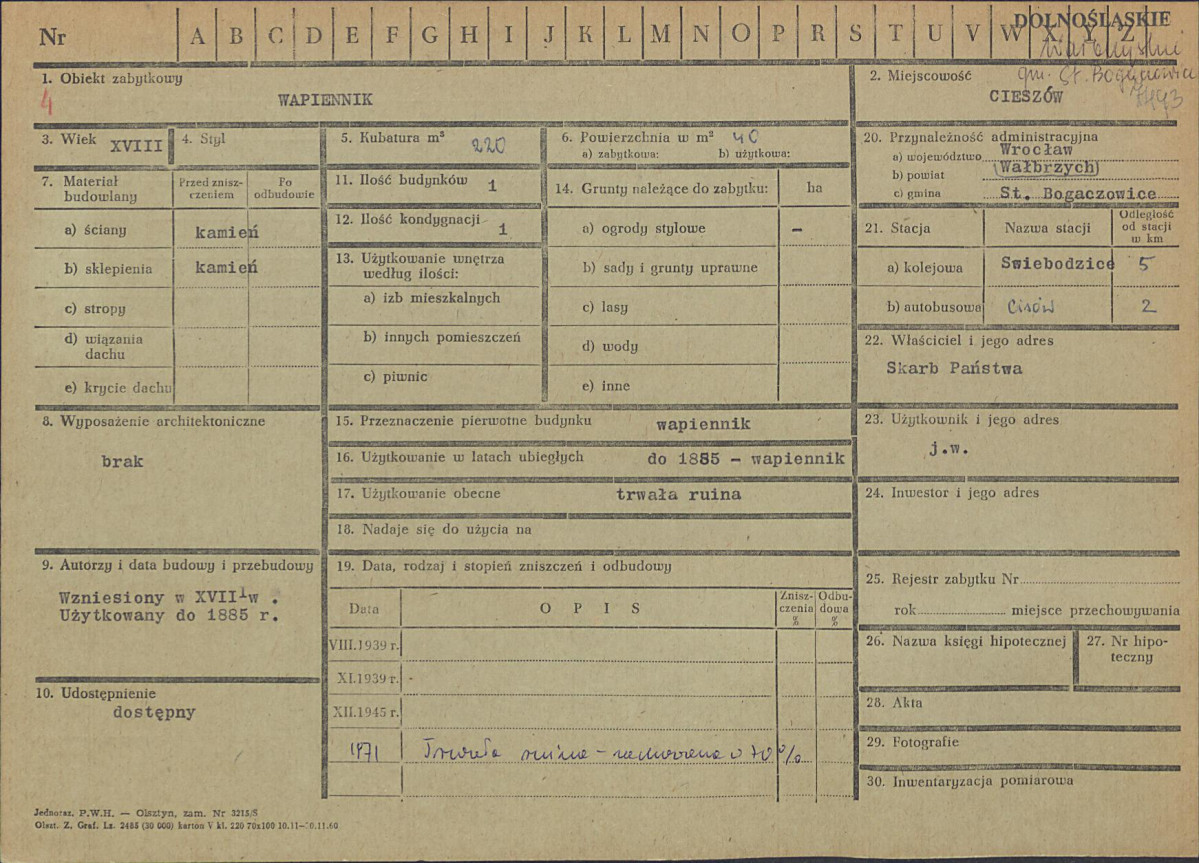 Nr A B C D E F G H I J K L M N O P R S T U V W X Y Z
DOLNOŚLĄSKIE
gm. St. Bogaczowice
1. Obiekt zabytkowy
4
WAPIENNIK
2. Miejscowość
CIESZÓW
3. Wiek XVIII
4. Styl
5. Kubatura m³ 220
6. Powierzchnia w m² 40
a) zabytkowa: b) użytkowa:
20. Przynależność administracyjna
a) województwo Wrocław
b) powiat Wałbrzych
c) gmina St. Bogaczowice
7. Materiał budowlany
Przed znisz-
czeniem
Po
odbudowie
a) ściany kamień
b) sklepienia kamień
c) stropy
d) wiązania
dachu
e) krycie dachu
11. Ilość budynków 1
12. Ilość kondygnacji 1
13. Użytkowanie wnętrza
według ilości:
a) izb mieszkalnych
b) innych pomieszczeń
c) piwnic
14. Grunty należące do zabytku: ha
a) ogrody stylowe –
b) sady i grunty uprawne
c) lasy
d) wody
e) inne
21. Stacja Nazwa stacji
Odległość
od stacji
w km
a) kolejowa Swiebodzice 5
b) autobusowa Cisów 2
22. Właściciel i jego adres
Skarb Państwa
8. Wyposażenie architektoniczne
brak
15. Przeznaczenie pierwotne budynku wapiennik
16. Użytkowanie w latach ubiegłych do 1885 – wapiennik
17. Użytkowanie obecne trwała ruina
18. Nadaje się do użycia na
23. Użytkownik i jego adres
j.w.
24. Inwestor i jego adres
9. Autorzy i data budowy i przebudowy
Wzniesiony w XVIII w .
Użytkowany do 1885 r.
10. Udostępnienie
dostępny
19. Data, rodzaj i stopień zniszczeń i odbudowy
Data O P I S
Znisz-
czenia
%
Odbu-
dowa
%
VIII.1939 r.
XI.1939 r. -
XII.1945 r.
1971 Trwała ruina – zachowana w 70 %
25. Rejestr zabytku Nr
rok miejsce przechowywania
26. Nazwa księgi hipotecznej
27. Nr hipo-
teczny
28. Akta
29. Fotografie
30. Inwentaryzacja pomiarowa
Jednoraz. P.W.H. — Olsztyn, zam. Nr 3215/S
Olszt. Z. Graf. Lz. 2485 (30 000) karton V kl. 220 70x100 10.11—30.11.60